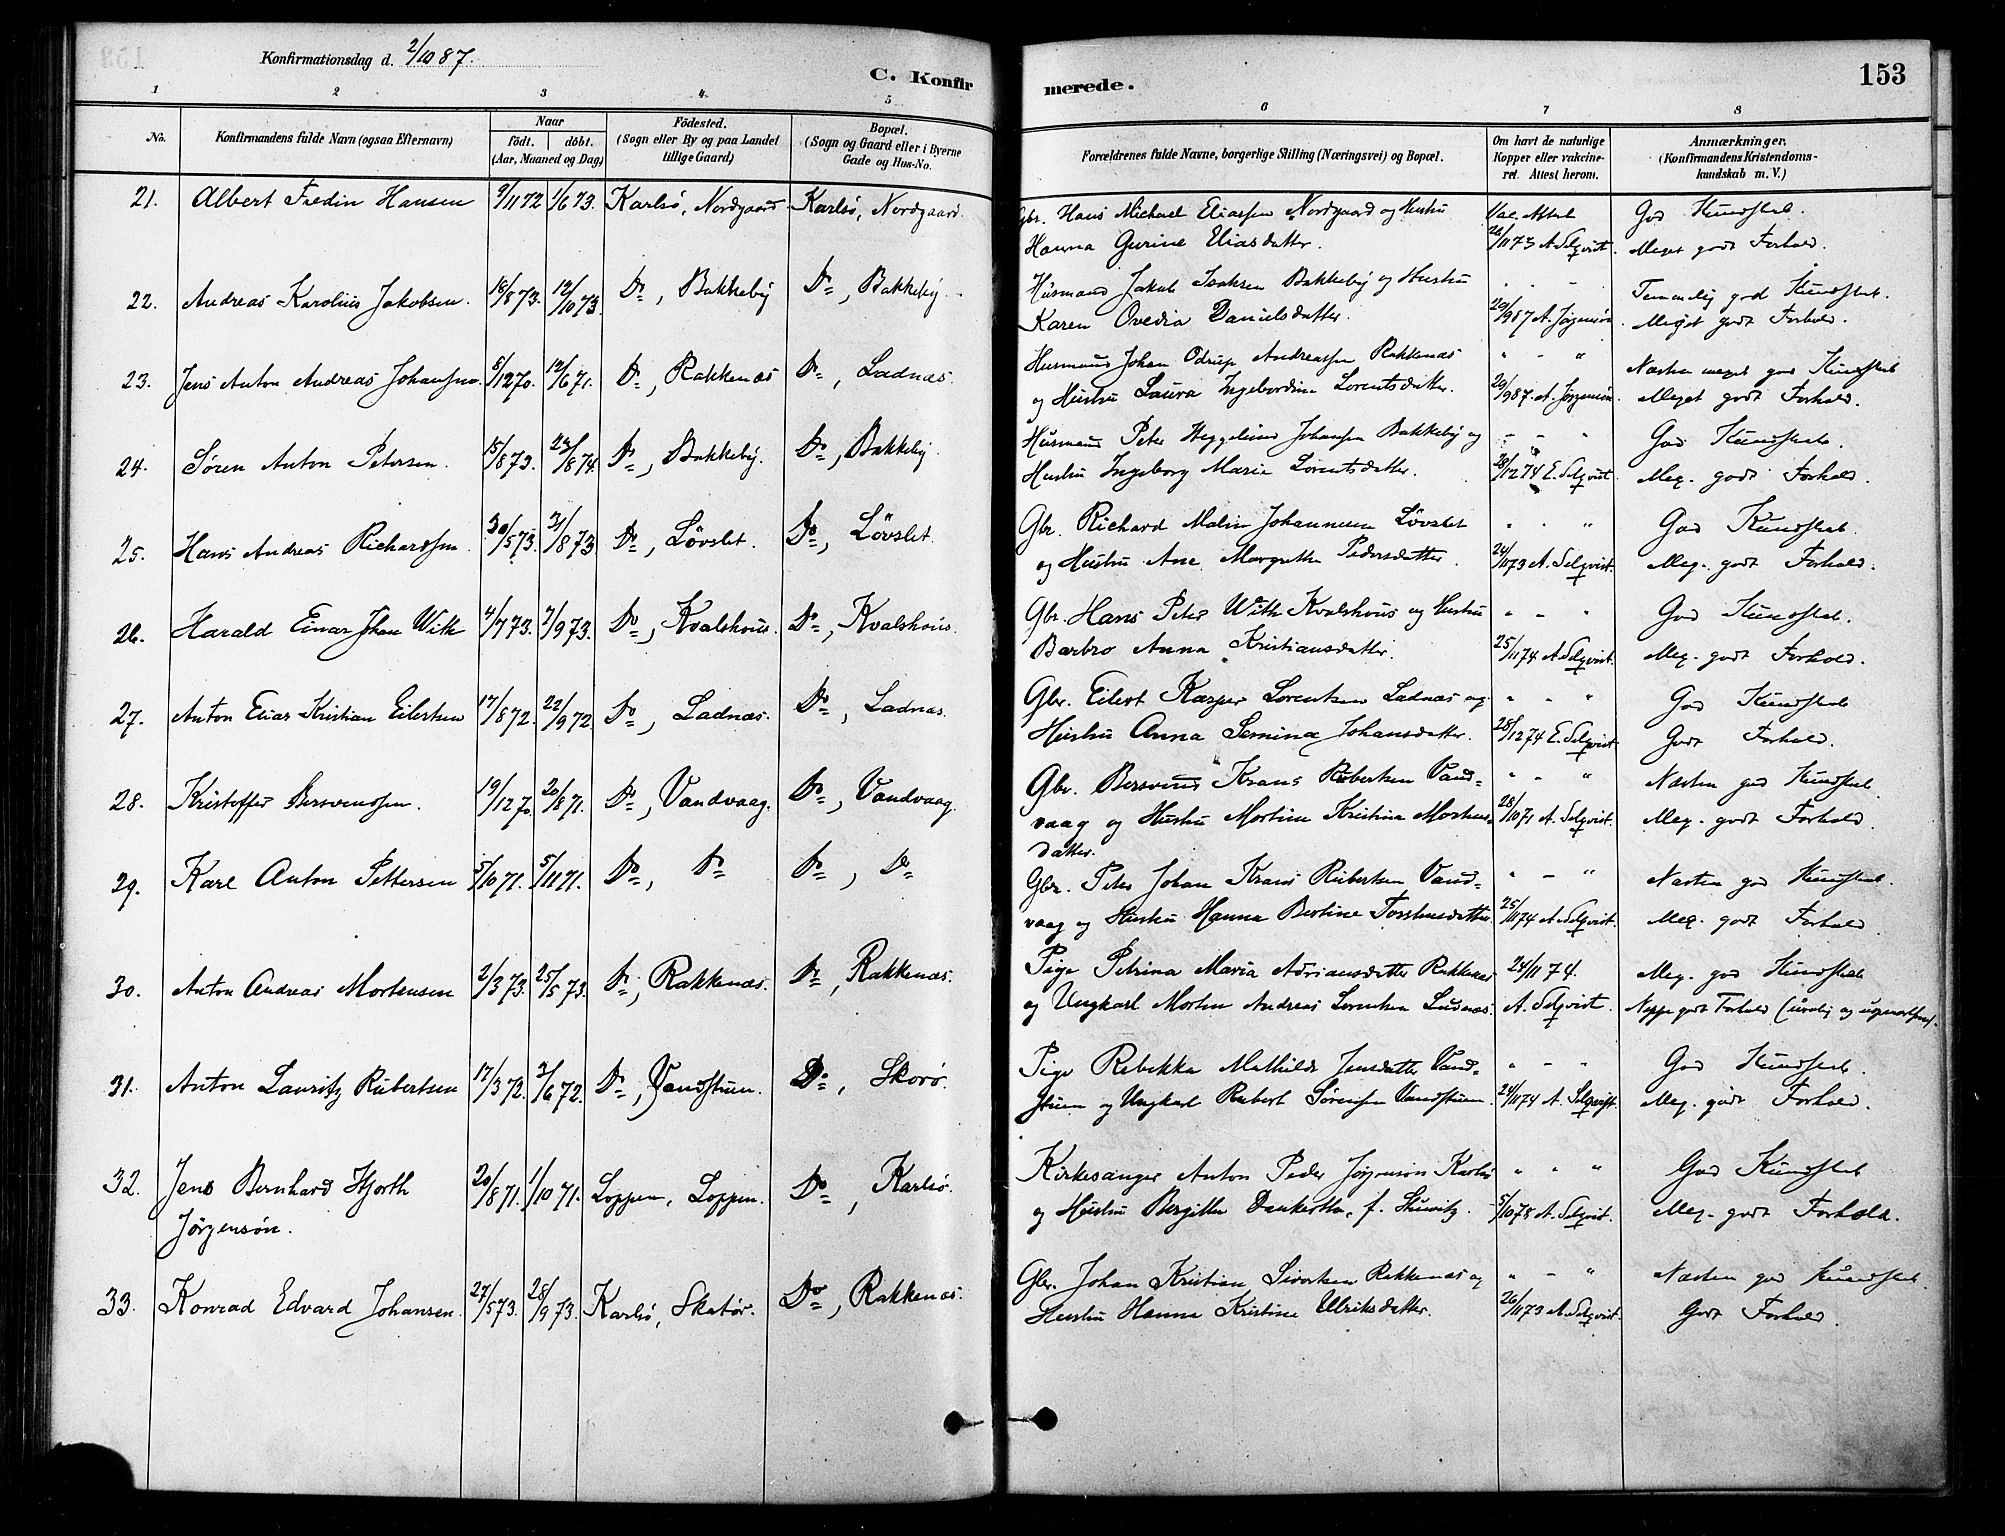 Konfirmationsdag d. 2/10 87.
C. Konfir
merede.
153
1 2 3 4 5 6 7 8
No.
Konfirmandens fulde Navn (ogsaa Efternavn)
Naar
født. døbt.
(Aar, Maaned og Dag)
Fødested.
(Sogn eller By og paa Landet
tillige Gaard)
Bopæl.
(Sogn og Gaard eller i Byerne
Gade og Hus-No.
Forældrenes fulde Navne, borgerlige Stilling (Næringsvei) og Bopæl.
Om havt de naturlige
Kopper eller vakcine-
ret. Attest herom.
Anmærkninger.
(Konfirmandens Kristendoms-
kundskab m. V.)
21. Albert Fredin Hansen 9/11 72 1/6 73. Karlsö, Nordgaard. Karlsö, Nordgaard. Gbr. Hans Michael Eliassen Nordgaard og Hustru Vac. Attest God Kundskab.
Hanna Gurine Eliasdatter. 26/11 73 A. Selqvist. Meget godt Forhold.
22. Andreas Karolius Jakobsen. 18/8 73. 12/10 73. Do, Bakkeby Do, Bakkeby. Husmand Jakob Isaksen Bakkeby og Hustru " - " Temmelig god Kundskab.
Karen Ovedia Danielsdatter. 20/9 87 A. Jørgensön. Meget godt Forhold.
23. Jens Anton Andreas Johansen. 8/12 70. 12/6 71. Do, Rakkenæs Do, Ladnæs. Husmand Johan Odrup Andreassen Rakkenæs " - " Næsten meget god Kundskab
og Hustru Laura Ingebordine Lorentsdatter. 20/9 87. A. Jørgensön. Meget godt Forhold.
24. Sören Anton Petersen. 15/8 73. 23/8 74. Do, Bakkeby. Do, Bakkeby. Husmand Peter Heggelund Johansen Bakkeby og " - " God Kundskab.
Hustru Ingeborg Maria Lorentsdatter. 28/12 74 E. Selqvist. Meg. godt Forhold.
25. Hans Andreas Richardsen. 30/5 73. 31/8 73 Do, Lövslet. Do, Lövslet. Gbr. Richard Malin Johannesen Lövslet " - " God Kundskab.
og Hustru Ane Margrethe Pedersdatter. 24/11 73 A. Selqvist. Meg. godt Forhold.
26. Harald Einar Johan With 4/7 73. 7/9 73. Do, Kvalshous. Do, Kvalshous. Gbr. Hans Peter With Kvalshous og Hustru " - " God Kundskab.
Barbro Anna Kristiansdatter. 25/11 74 A. Selqvist. Meg. godt Forhold.
27. Anton Elias Kristian Eilertsen 17/8 72. 22/9 72. Do, Ladnæs. Do, Ladnæs. Gbr. Eilert Kasper Lorentsen Ladnæs og " - " God Kundskab
Hustru Anna Semina Johansdatter. 28/12 74 E. Selqvist. Godt Forhold.
28. Kristoffer Bersvensen. 19/12 70. 20/8 71. Do, Vandvaag. Do, Vandvaag. Gbr. Bersvend Krans Rubertsen Vand- " - " Næsten god Kundskab.
vaag og Hustru Mortine Kristina Mortens- 28/10 71 A. Selqvist. Meg. godt Forhold.
datter.
29. Karl Anton Pettersen 5/10 71. 5/11 71. Do, Do Do, Do Gbr. Peter Johan Krans Rubertsen Vand- " - " Næsten god Kundskab.
vaag og Hustru Hanna Bertine Torstensdatter. 25/11 74 A. Selqvist. Meg. godt Forhold.
30. Anton Andreas Mortensen 2/3 73. 25/5 73. Do, Rakkenæs. Do, Rakkenæs. Pige Petrina Maria Adriansdatter Rakkenæs 24/11 74. Meg. god Kundskab
og Ungkarl Morten Andreas Lorentsen Ladnæs. A. Selqvist. Neppe godt Forhold (urolig og
31. Anton Lauritz Rubertsen 17/3 72. 3/6 72. Do, Vandstuen. Do, Skorö. Pige Rebekka Mathilde Jensdatter Vand- " - " God Kundskab.
stuen og Ungkarl Rubert Sörensen Vandstuen 24/11 74 A. Selqvist. Meg. godt Forhold.
32. Jens Bernhard Hjorth 20/8 71. 1/10 71. Loppen, Loppen. Do, Karlsö. Kirkesanger Anton Peder Jörgensön Karlsö " " " God Kundskab
Jörgensön. og Hustru Bergitte Dankertha, f. 5/10 78 A. Selqvist. Meg. godt Forhold.
33. Konrad Edvard Johansen. 27/5 73. 28/9 73. Karlsö, Skatör. Do, Rakkenæs. Gbr. Johan Kristian Sivertsen Rakkenæs og " - " Næsten god Kundskab
Hustru Hanna Kristine Ulriksdatter. 26/11 73 A. Selqvist. Godt Forhold.